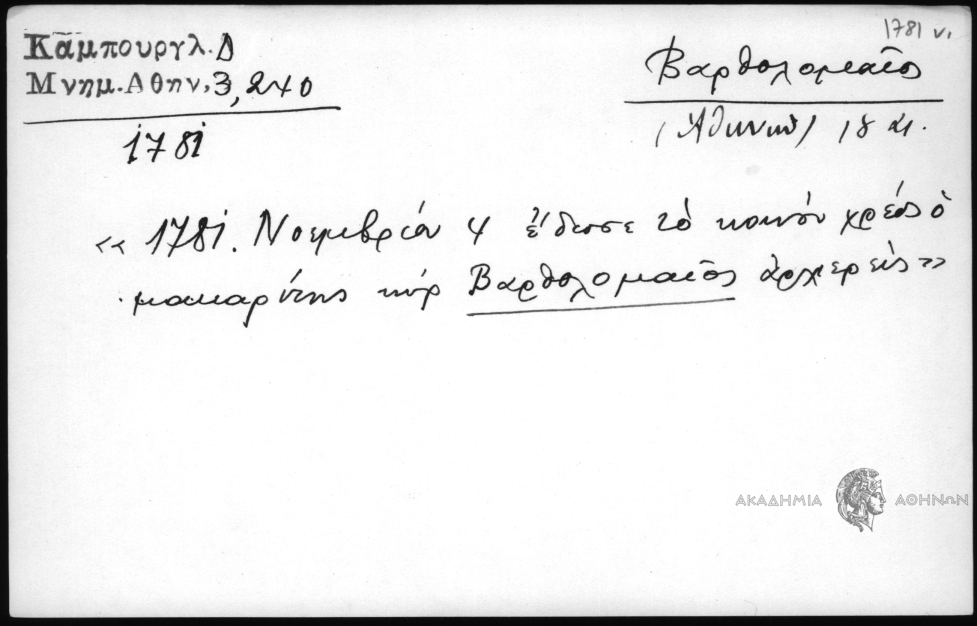 1781 ν.
Καμπουργλ. Δ
Μνημ. Αθην. 3, 240
1781
Βαρθολομαῖος
(Ἀθηνῶν) 18 αι.
«1781. Νοεμβρίου 4 ἔδωσε τὸ κοινὸν χρέος ὁ
μακαρίτης κὺρ Βαρθολομαῖος ἀρχιερεὺς»
ΑΚΑΔΗΜΙΑ ΑΘΗΝΩΝ